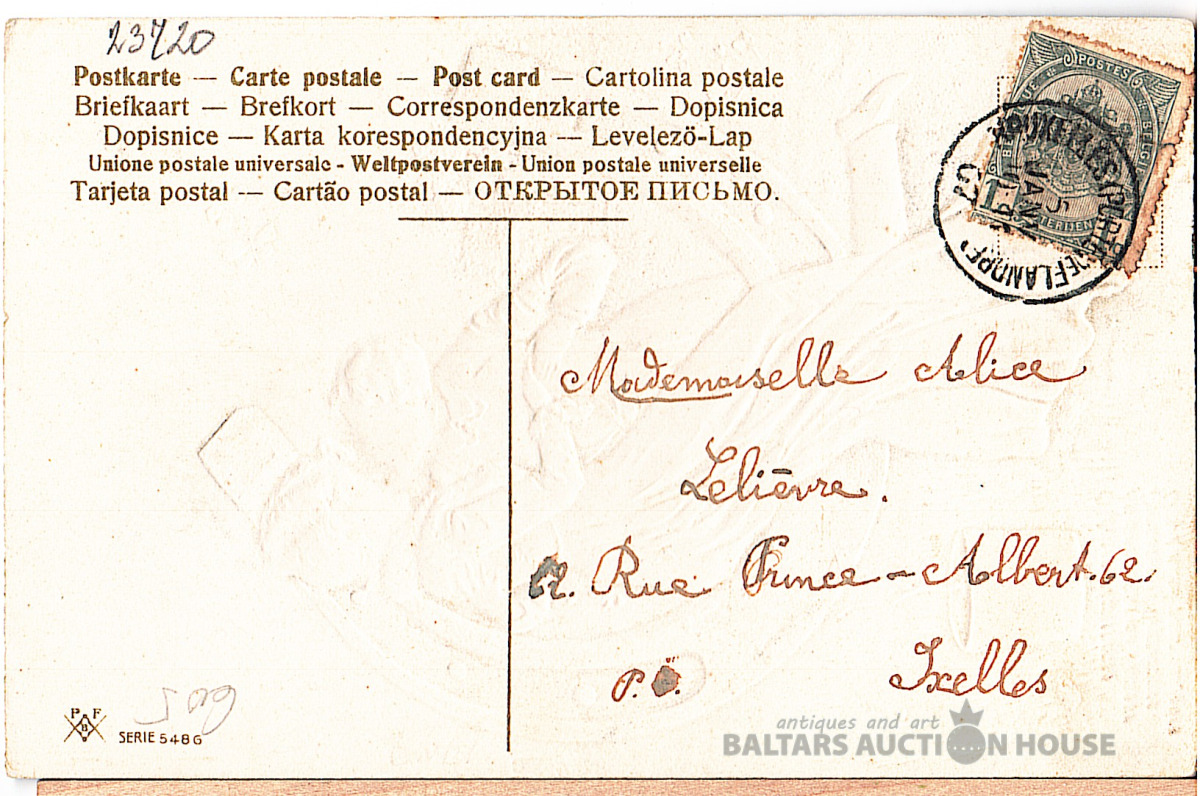 23720
Postkarte — Carte postale — Post card — Cartolina postale
Briefkaart — Brefkort — Correspondenzkarte — Dopisnica
Dopisnice — Karta korespondencyjna — Levelező-Lap
Unione postale universale - Weltpostverein - Union postale universelle
Tarjeta postal — Cartão postal — ОТКРЫТОЕ ПИСЬМО.
POSTES
Mademoiselle Alice
Lelièvre.
Rue Prince-Albert. 62.
Ixelles
P F
B
SERIE 548 G
antiques and art
BALTARS AUCTION HOUSE